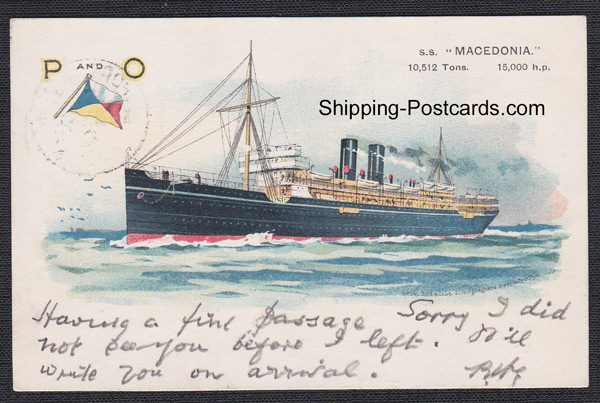 P AND O
S.S. "MACEDONIA."
10,512 Tons. 15,000 h.p.
Shipping-Postcards.com
Having a fine passage Sorry I did
not see you before I left. I'll
write you on arrival.